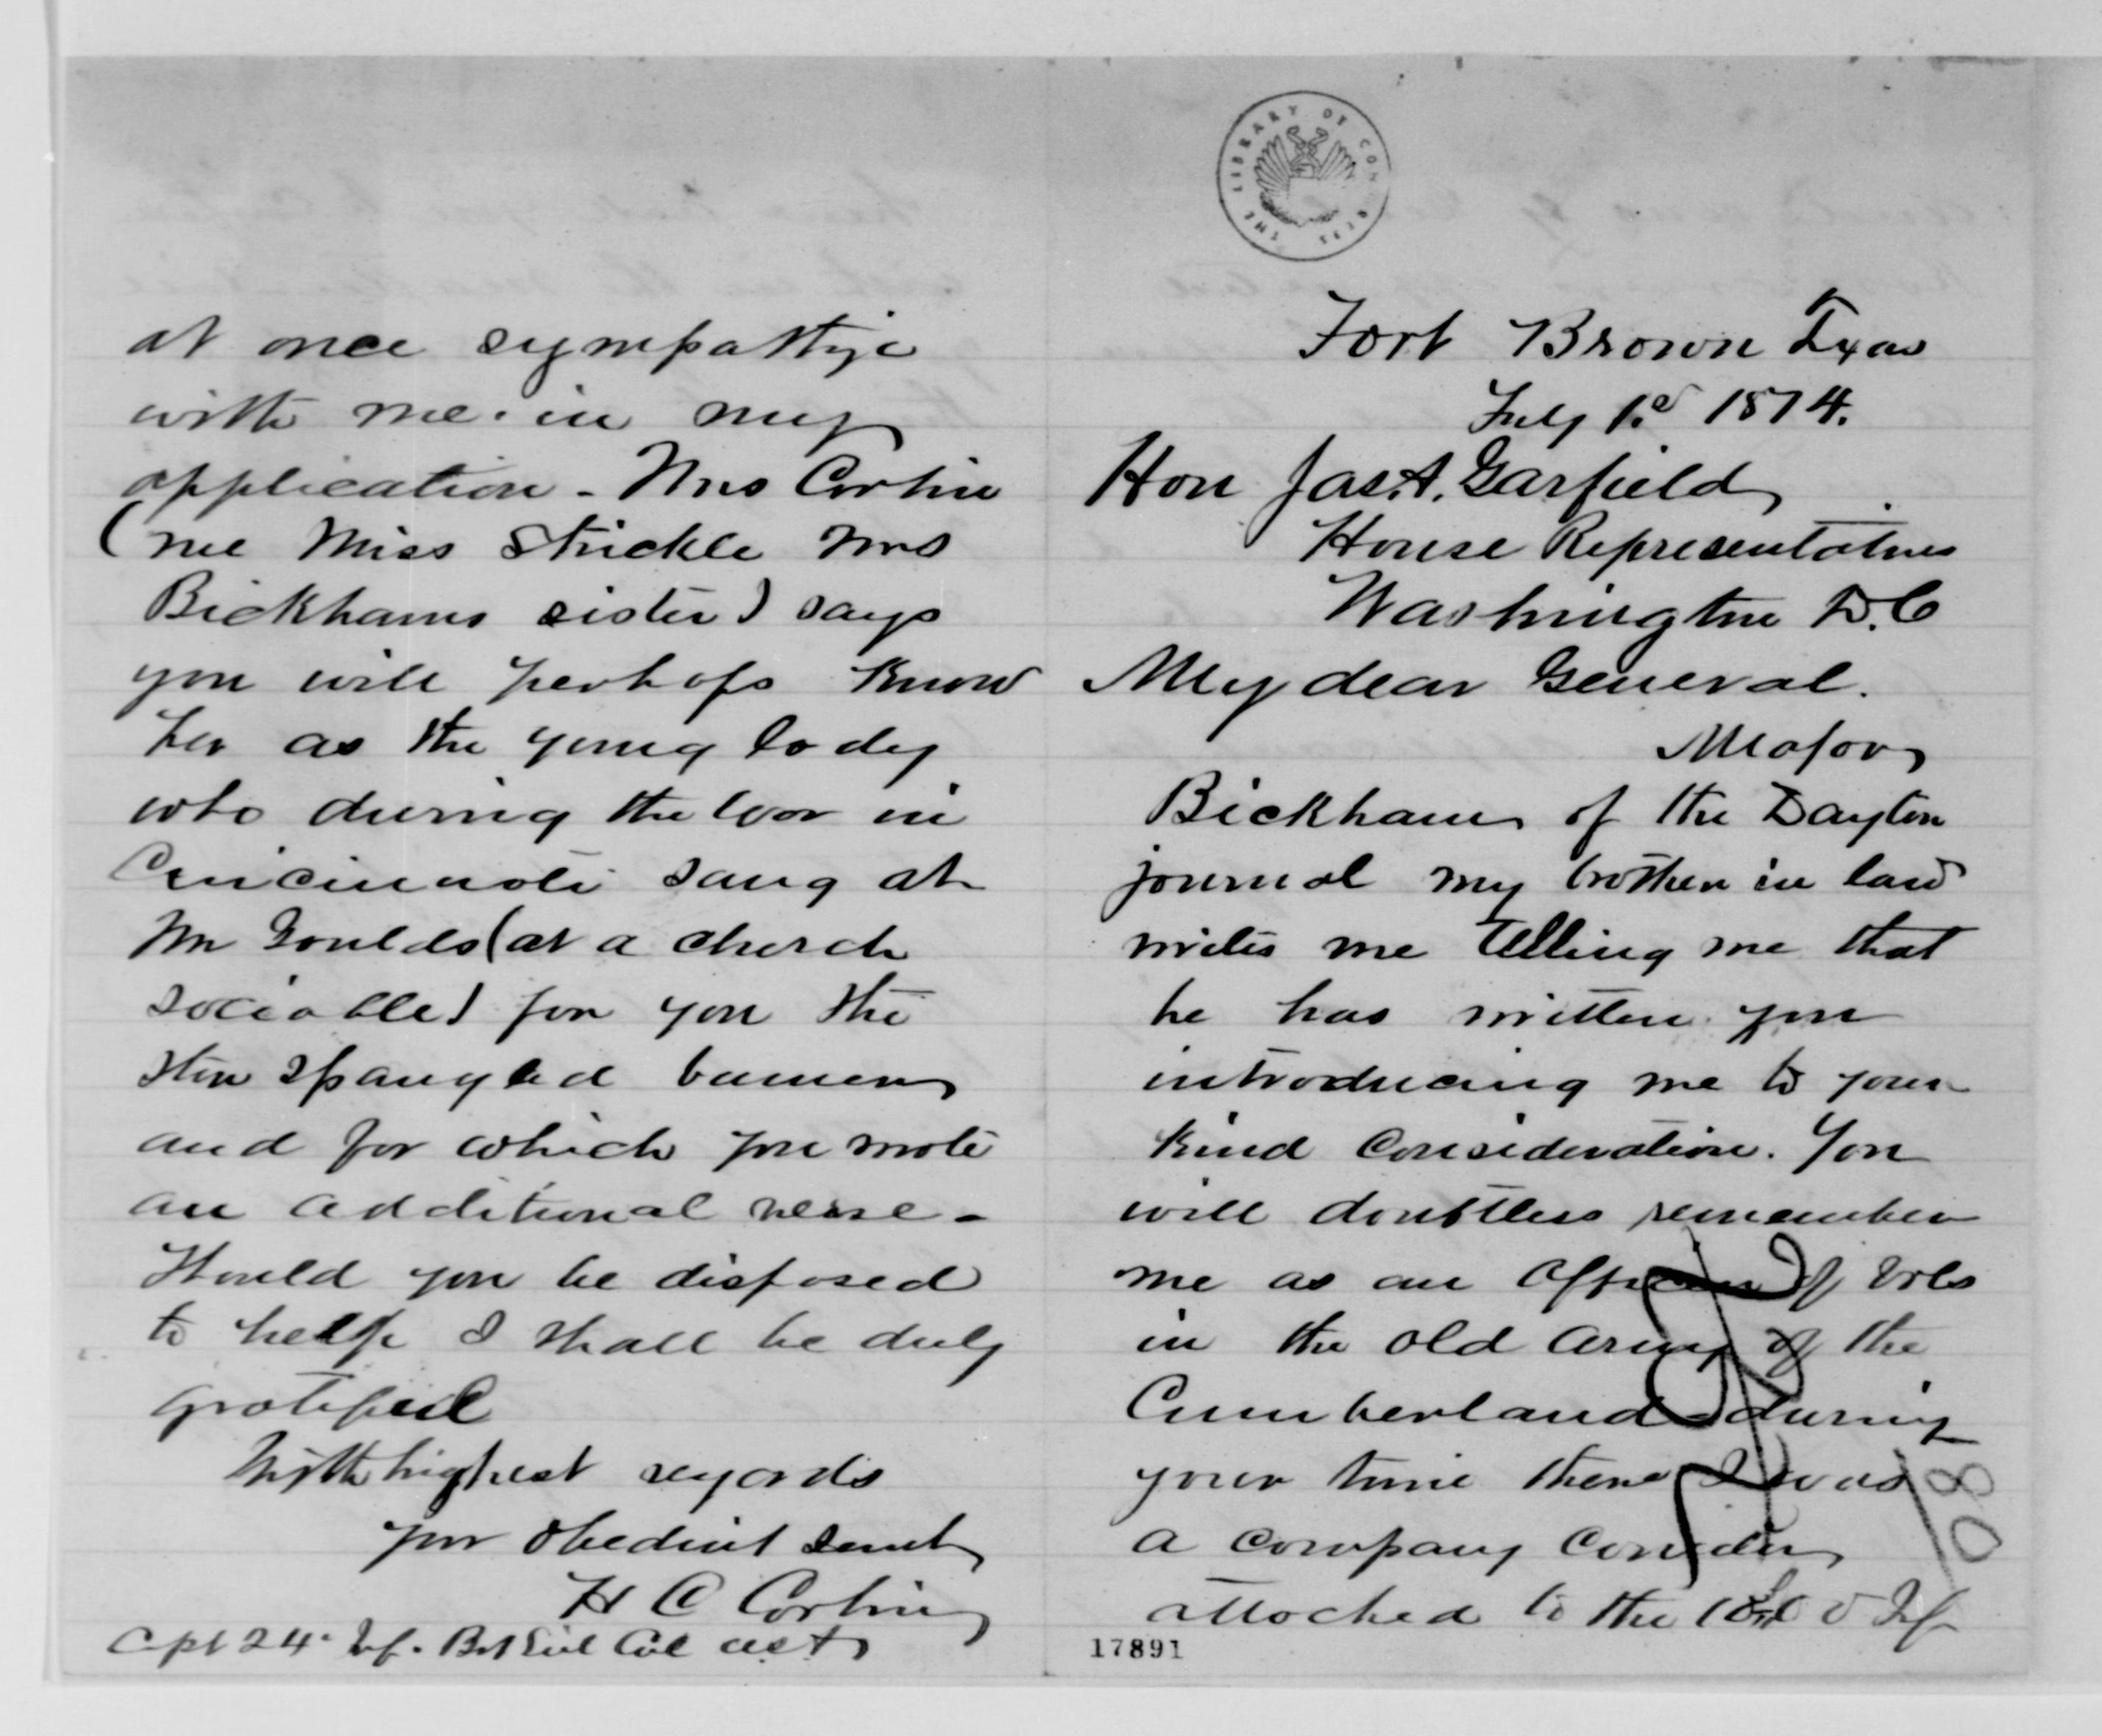 THE LIBRARY OF CONGRESS
Fort Brown Texas
July 1st 1874.
Hon Jas. A. Garfield
House Representatives
Washington D.C
My dear General.
Major
Bickham of the Dayton
journal my brother in law
writes me telling me that
he has written you
introducing me to your
kind consideration. You
will doubtless remember
me as an officer of Vols
in the old army of the
Cumberland during
your time there I was
a company Comder
attached to the 18th O Inf
17891
at once sympathize
with me in my
application - Mrs Corbin
(nee Miss Strickle Mrs
Bickhams sister) says
you will perhaps know
her as the young lady
who during the war in
Cincinnati sang at
Mr Goulds (at a church
sociable) for you the
star spangled banner
and for which you wrote
an additional verse -
Should you be disposed
to help I shall be duly
gratified
With highest regards
your obedient Servt
H C Corbin
Capt 24 Inf. Bvt Lieut Col USA